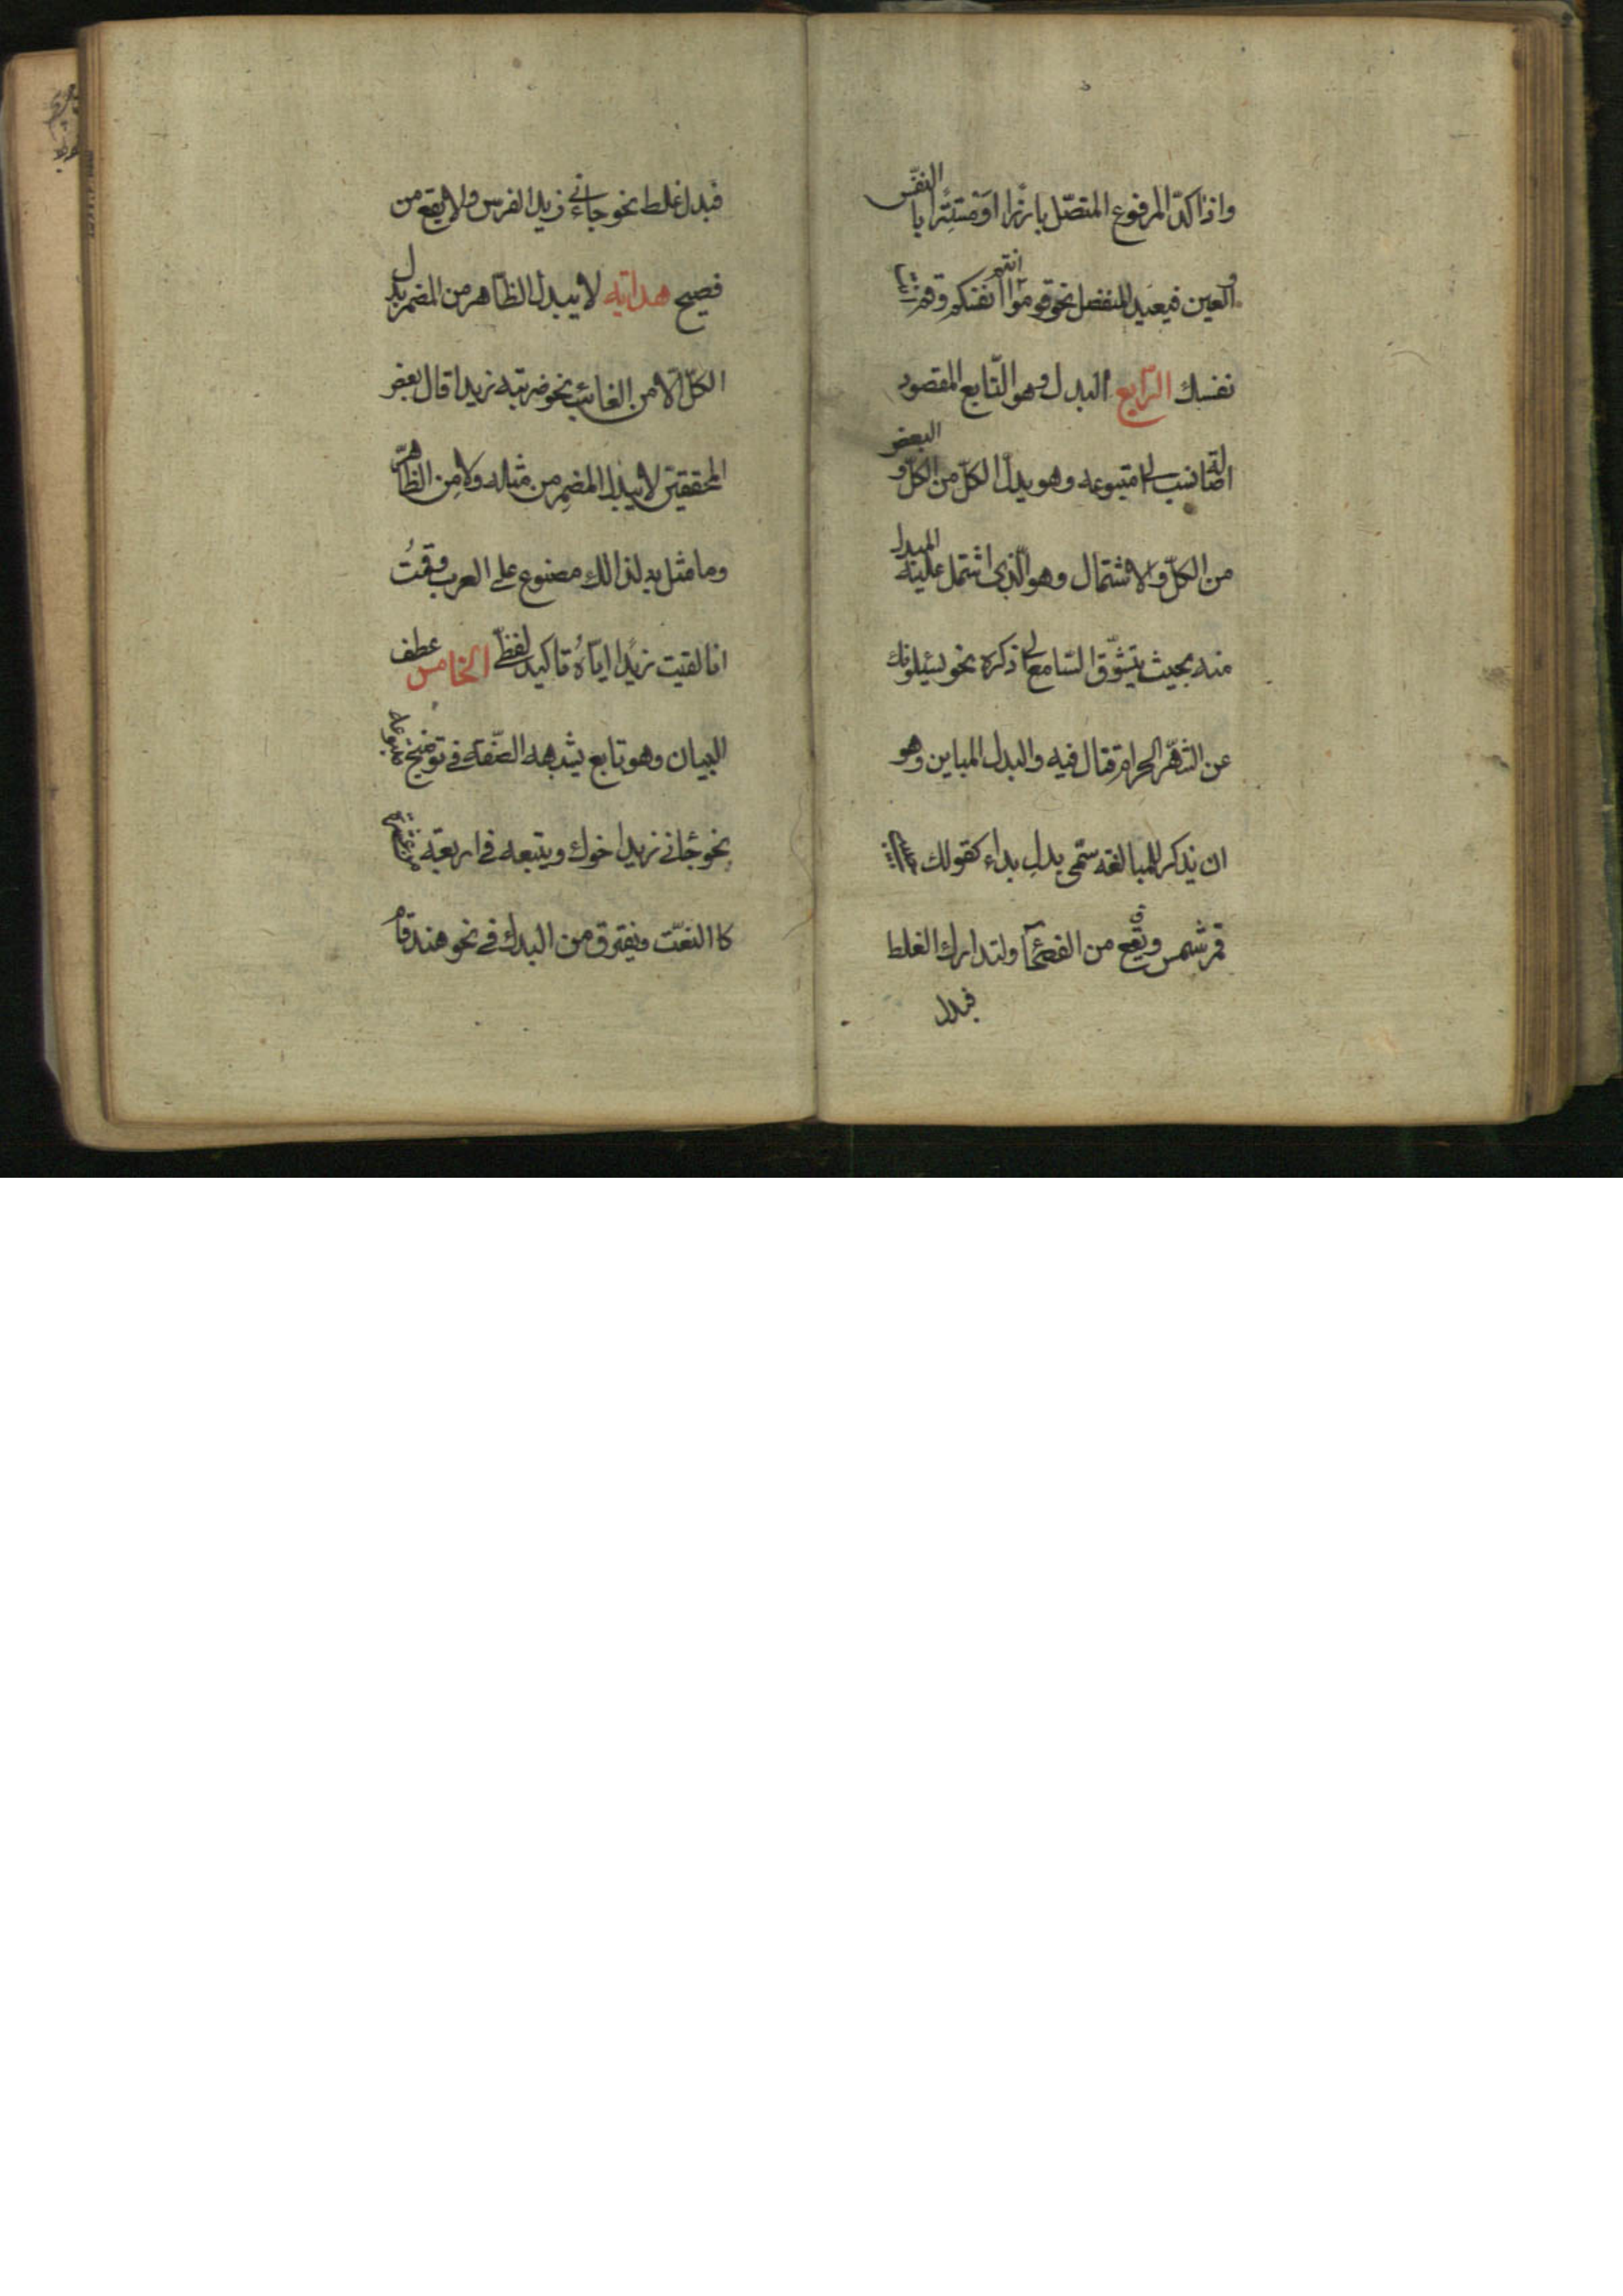 واذا اكدّ المرفوع المتصّل بارزًا او مستتِرًا با النفس
و العين فبعيد المنفصل نحو قوموا انتم انفسكم وقم انت
نفسك الرّابع البدل وهو التّابع المقصود
اصالة بما نسب الى متبوعه وهو بدل الكلّ من الكلّ و البعض
من الكلّ و الاشتمال وهو الّذى اشتمل عليه المبدل
منه بحيث يتشوّق السّامع الى ذكره نحو يسئلونك
عن الشّهر الحرام قتال فيه والبدل المباين وهو
ان يذكر للمبالغه سمّى بدل بداء كقولك
قمر شمس ويقع من الفصحآ ولتدارك الغلط
فبدل
فبدل غلط نحو جاءنى زيد الفرس ولا يقع من
فصيح هدايه لا يبدل الظّاهر من المضمر بدل
الكلّ الّا من الغائب نحو ضربته زيدا قال بعض
المحققين لا يبدل المضمر من مثله ولا من الظّاهر
وما مثل به لذالك مصنوع على العرب وقمتُ
انا لقيت زيدًا ايّاهُ تاكيد لفظّى الخامس عطف
البيان وهو تابع يشبهه الصّفة فى توضيح متبوعه
نحو جائنى زيد اخوك ويتبعه فى اربعة من عشرة
كا النعّت ويفترق من البدل فى نحو هند قام